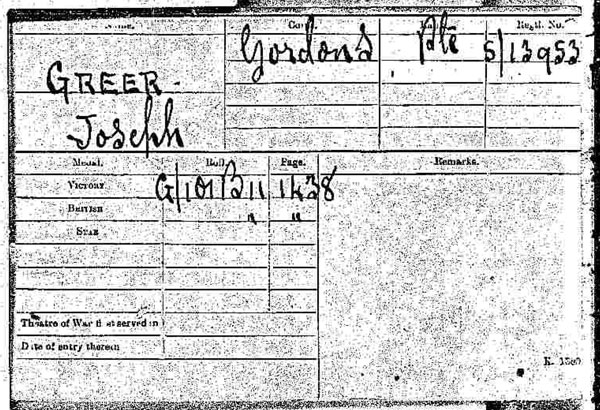 Name. Corps. Regtl. No.
GREER - Gordons Pte S/13953
Joseph
Medal. Roll. Page. Remarks.
VICTORY G/101B11 1438
BRITISH " "
STAR
Theatre of War first served in
Date of entry therein
K. 1380